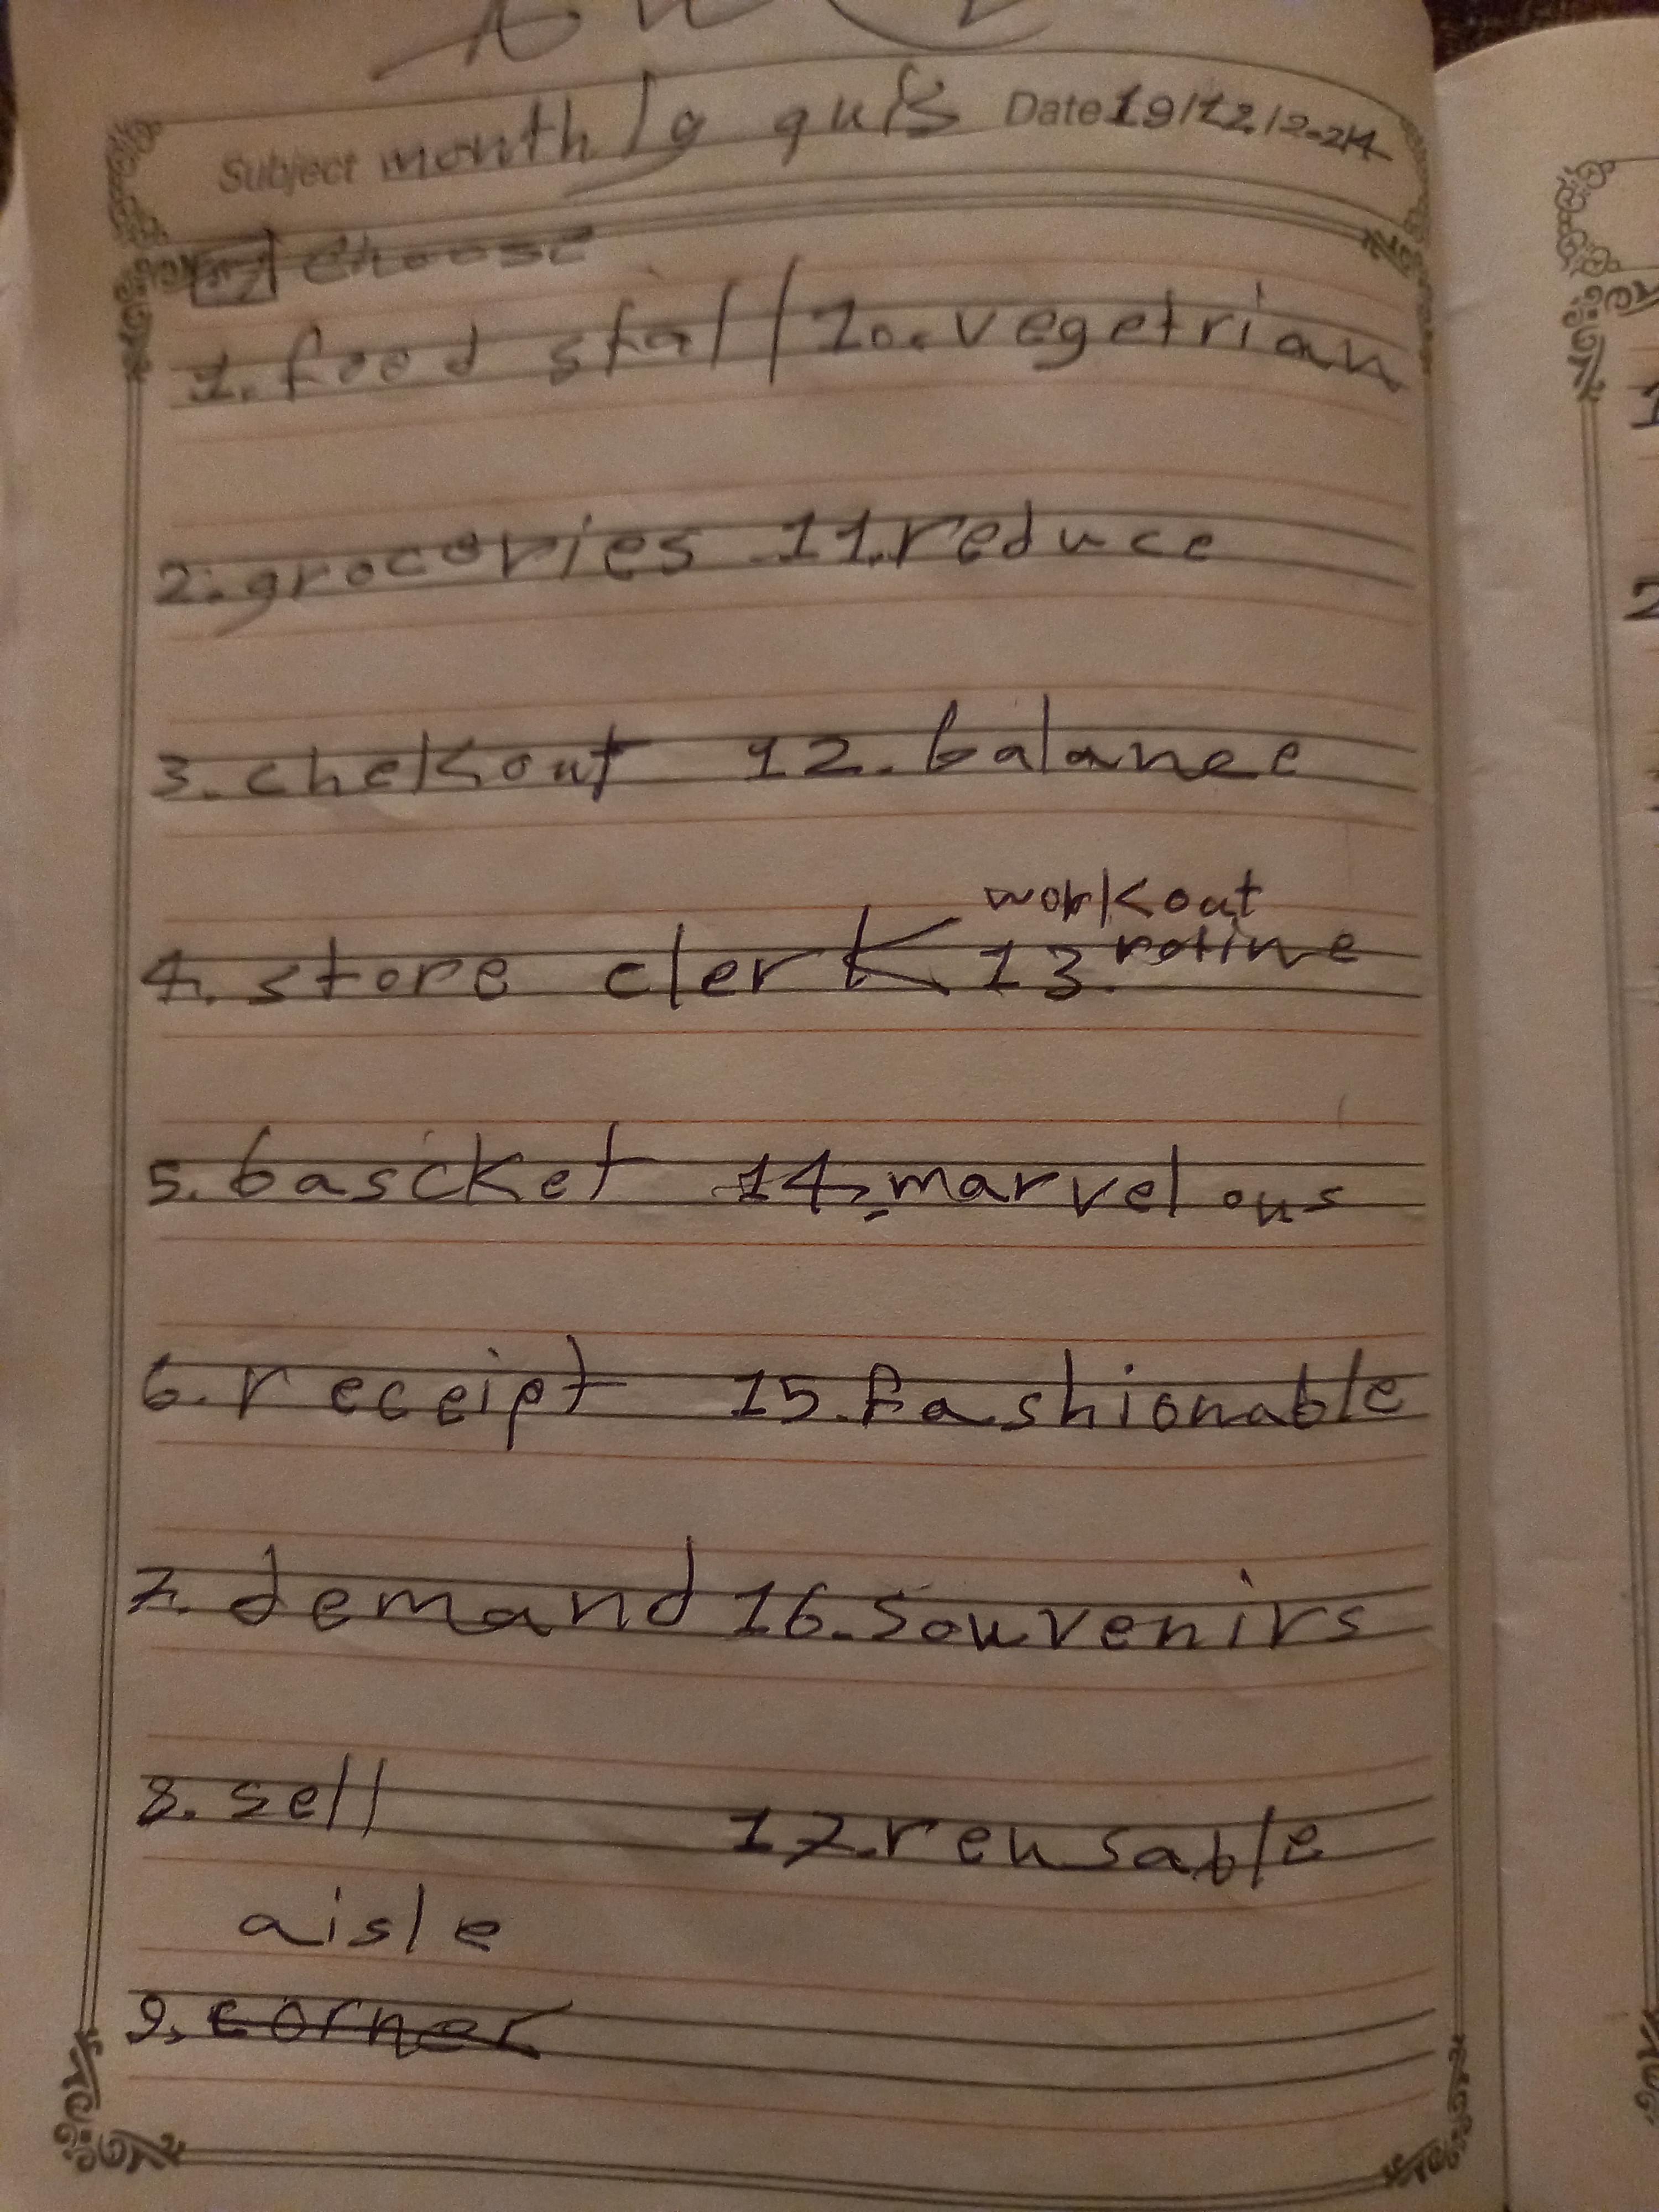 Subject monthly quis Date 19/12/2024
choose
1. food stall 10. vegetrian
2. groceries 11. reduce
3. chekout 12. balance
workout
4. store clerk 13. rotine
5. bascket 14. marvelous
6. receipt 15. fashionable
7. demand 16. souvenirs
8. sell 17. reusable
aisle
9. corner